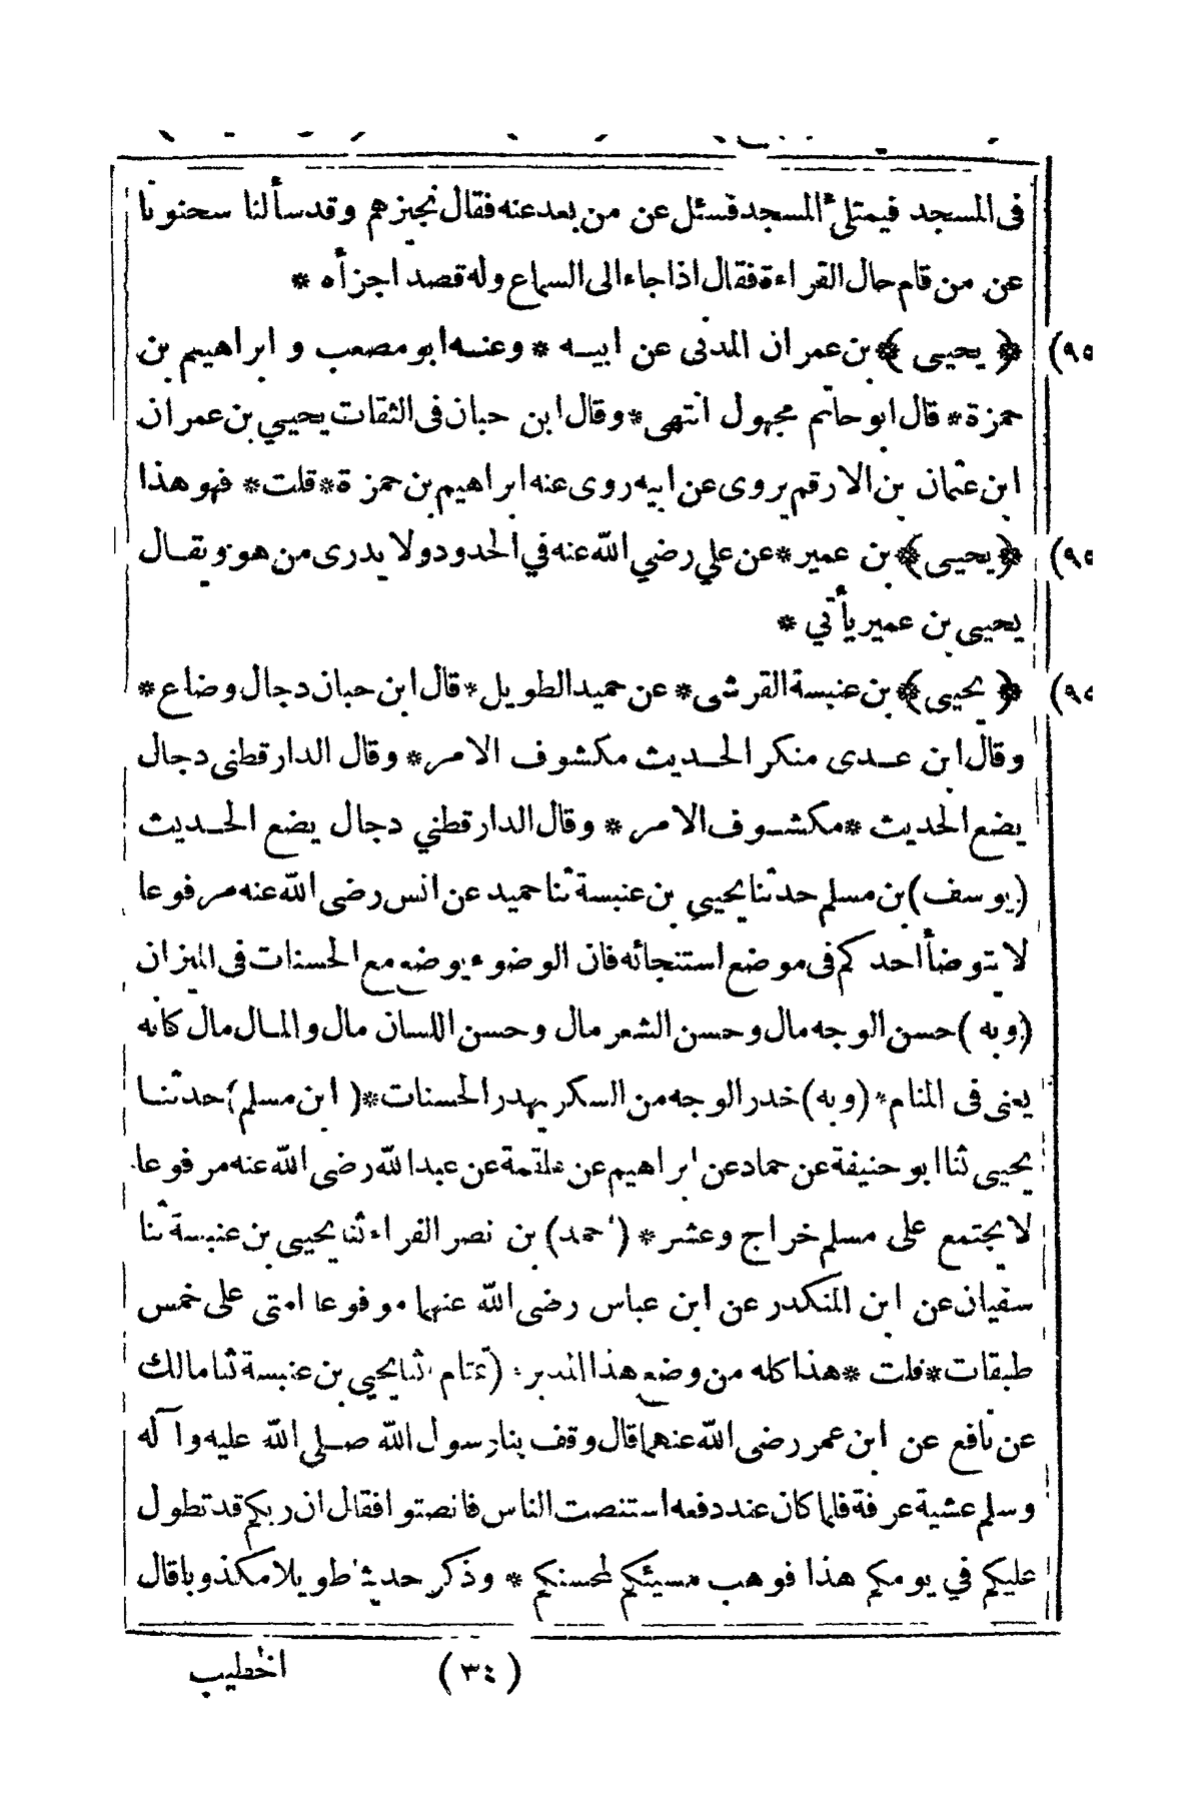 فى المسجد فيمتلئ المسجد فسئل عن من بعد عنه فقال نجيزهم وقد سألنا سحنونا
عن من قام حال القراءة فقال اذا جاء الى السماع وله قصد اجزأه *
﴿ يحيى ﴾ بن عمران المدنى عن ابيـه * وعنـه ابو مصعب و ابراهيم بن (٩٥
حمزة * قال ابو حاتم مجهول انتهى * وقال ابن حبان فى الثقات يحيى بن عمران
ابن عثمان بن الارقم يروى عن ابيه روى عنه ابراهيم بن حمزة * قلت * فهو هذا
﴿ يحيى ﴾ بن عمير * عن علي رضي الله عنه في الحدود ولا يدرى من هو ويقـال (٩٥
يحيى بن عمير يأتي *
﴿ يحيى ﴾ بن عنبسة القرشى * عن حميد الطويل * قال ابن حبان دجال وضاع * (٩٥
وقال ابن عـدى منكر الحـديث مكشوف الامر * وقال الدارقطنى دجال
يضع الحديث * مكشـوف الامر * وقال الدارقطني دجال يضع الحـديث
(يوسف) بن مسلم حدثنا يحيى بن عنبسة ثنا حميد عن انس رضى الله عنه مرفوعا
لا يتوضأ احدكم فى موضع استنجائه فان الوضوء يوضع مع الحسنات فى الميزان
(وبه) حسن الوجه مال وحسن الشعر مال وحسن اللسان مال والمـال مال كانه
يعنى فى المنام * (وبه) خدر الوجه من السكر يهدر الحسنات * ( ابن مسلم) حدثنـا
يحيى ثنا ابو حنيفة عن حماد عن ابراهيم عن علقمة عن عبد الله رضى الله عنه مرفوعا
لا يجتمع على مسلم خراج وعشر * (احمد) بن نصر الفراء ثنا يحيى بن عنبسة ثنا
سفيان عن ابن المنكدر عن ابن عباس رضى الله عنهما موقوعا امتى على خمس
طبقات * قلت * هذا كله من وضع هذا المدبر * (تمتام) ثنا يحيى بن عنبسة ثنا مالك
عن نافع عن ابن عمر رضى الله عنهما قال وقف بنا رسول الله صـلى الله عليه وآله
وسلم عشية عرفة فلما كان عند دفعه استنصت الناس فانصتوا فقال ان ربكم قد تطول
عليكم في يومكم هذا فوهب مسيئكم لمحسنكم * وذكر حديثا طويلا مكذوبا قال
(٣٤) الخطيب